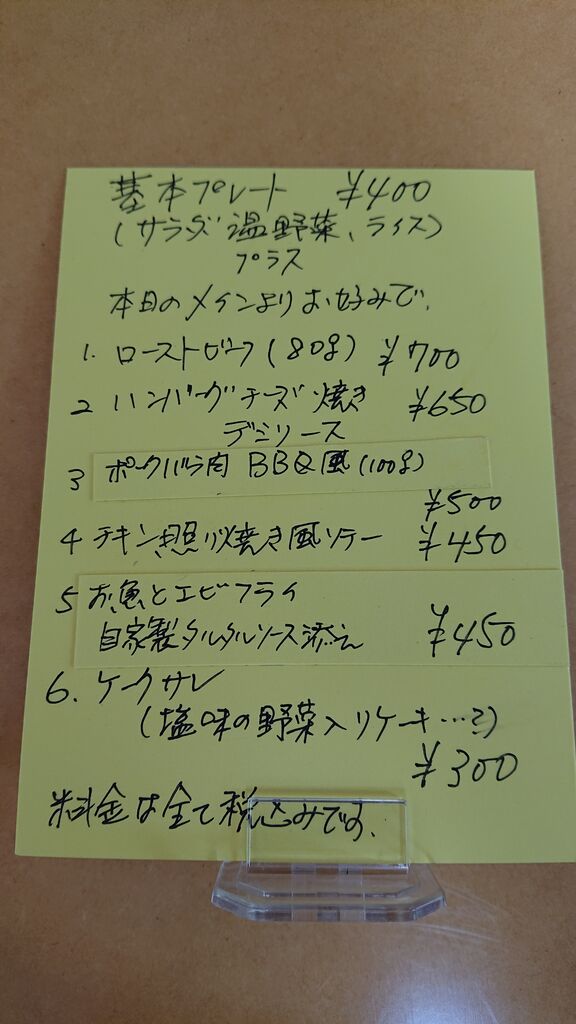 基本プレート ¥400
(サラダ 温野菜、ライス)
プラス
本日のメインよりお好みで、
1. ローストビーフ(80g) ¥700
2 ハンバーグチーズ焼き ¥650
デミソース
3 ポークバラ肉 BBQ風(100g)
¥500
4 チキン照り焼き風ソテー ¥450
5 お魚とエビフライ
自家製タルタルソース添え ¥450
6. ケークサレ
(塩味の野菜入りケーキ…?)
¥300
料金は全て税込みです。